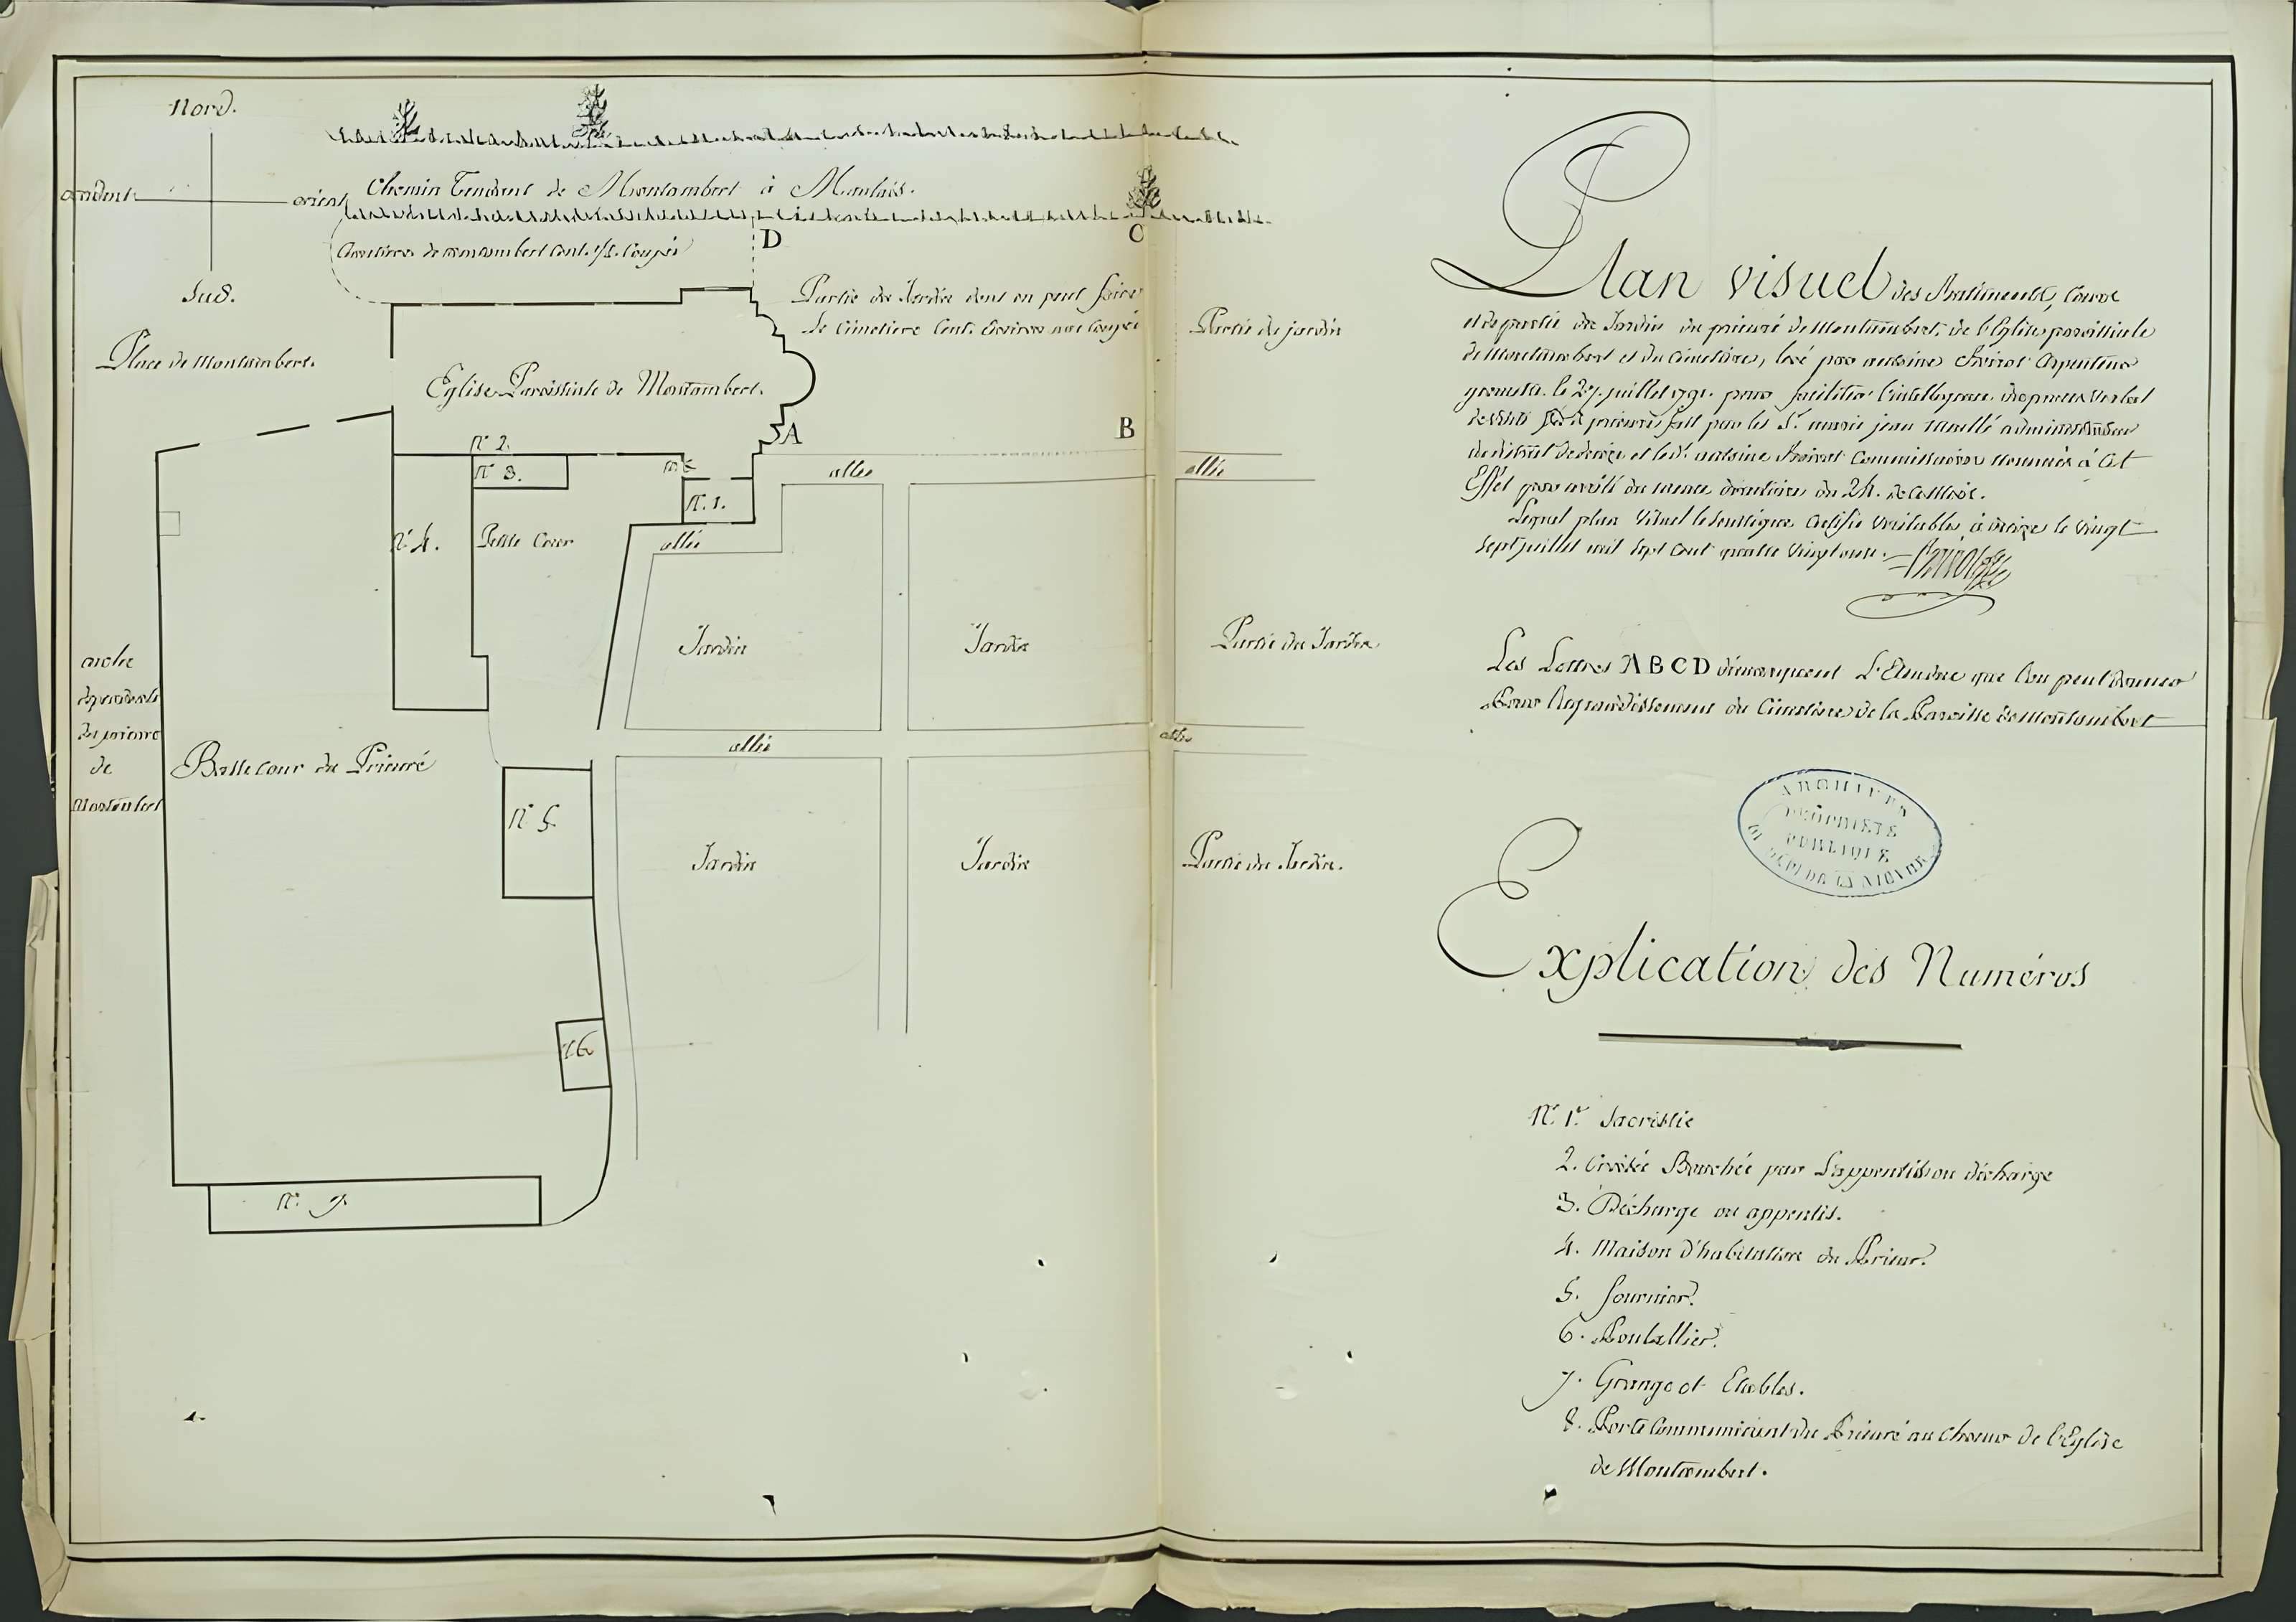 Nord.
occident
orient
Sud.
Chemin Tendant de Montambert à Maulais.
Cimetierre de montambert Cont. 1/2 Coupée
D
C
Partie du Jardin dont on peut faire
le Cimetiere Cont. Environ une Coupée
Partie du jardin
Place de Montambert.
Eglise Paroissiale de Montambert.
A
B
N° 2.
N° 3.
N. 1.
allée
allée
N° 4.
Petite Cour
allée
Jardin
Jardin
Partie du Jardin
de
Montambert
Basse Cour du Prieuré
allée
allée
N° 5
Jardin
Jardin
Partie du Jardin.
N 6
N. 7.
Plan visuel des Batiments, Cours
et de partie du Jardin du prieuré de Montambert, de l'Eglise paroissiale
de Montambert et du Cimetiere, levé par antoine Arpenteur
le 27. juillet 1791. pour faciliter l'intelligence du procès verbal
de prieuré fait par les Srs. marie jean administrateur
du district de decize et led. antoine Commissaires nommés à Cet
Effet par arrêté du meme directoire du 24. de Ce Mois.
Lequel plan Visuel le soussigné Certifie Veritable, à decize le vingt
sept juillet mil sept Cent quatre vingt onze.
Les Lettres A B C D démarquent L'Etendue que l'on peut donner
Pour l'agrandissement du Cimetiere de la Paroisse de Montambert
ARCHIVES
PROPRIÉTÉ
PUBLIQUE
DU DÉPT DE LA NIÈVRE
Explication des Numéros
N. 1er. Sacristie
2. Croisée Bouchée par L'appentis ou décharge
3. Décharge ou appentis.
4. Maison d'habitation du Prieur.
5. fournier.
6. Poulallier.
7. Grange et Etables.
8. Porte Communicant du Prieuré au Choeur de l'Eglise
de Montambert.